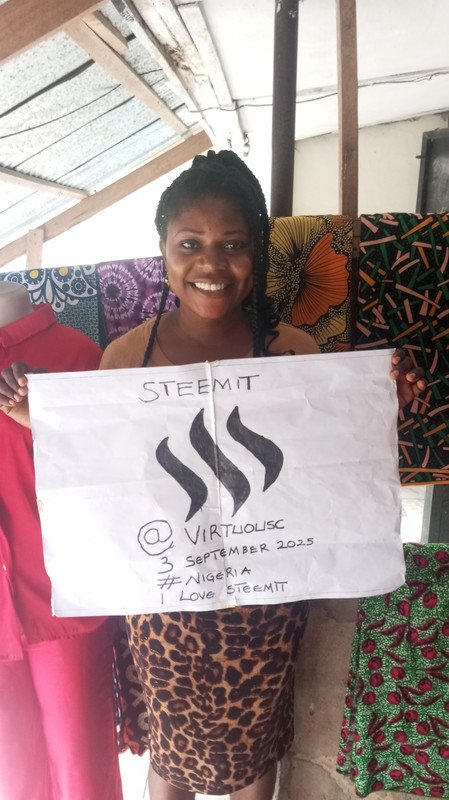 STEEMIT
@VIRTUOUSC
3 SEPTEMBER 2025
#NIGERIA
I LOVE STEEMIT